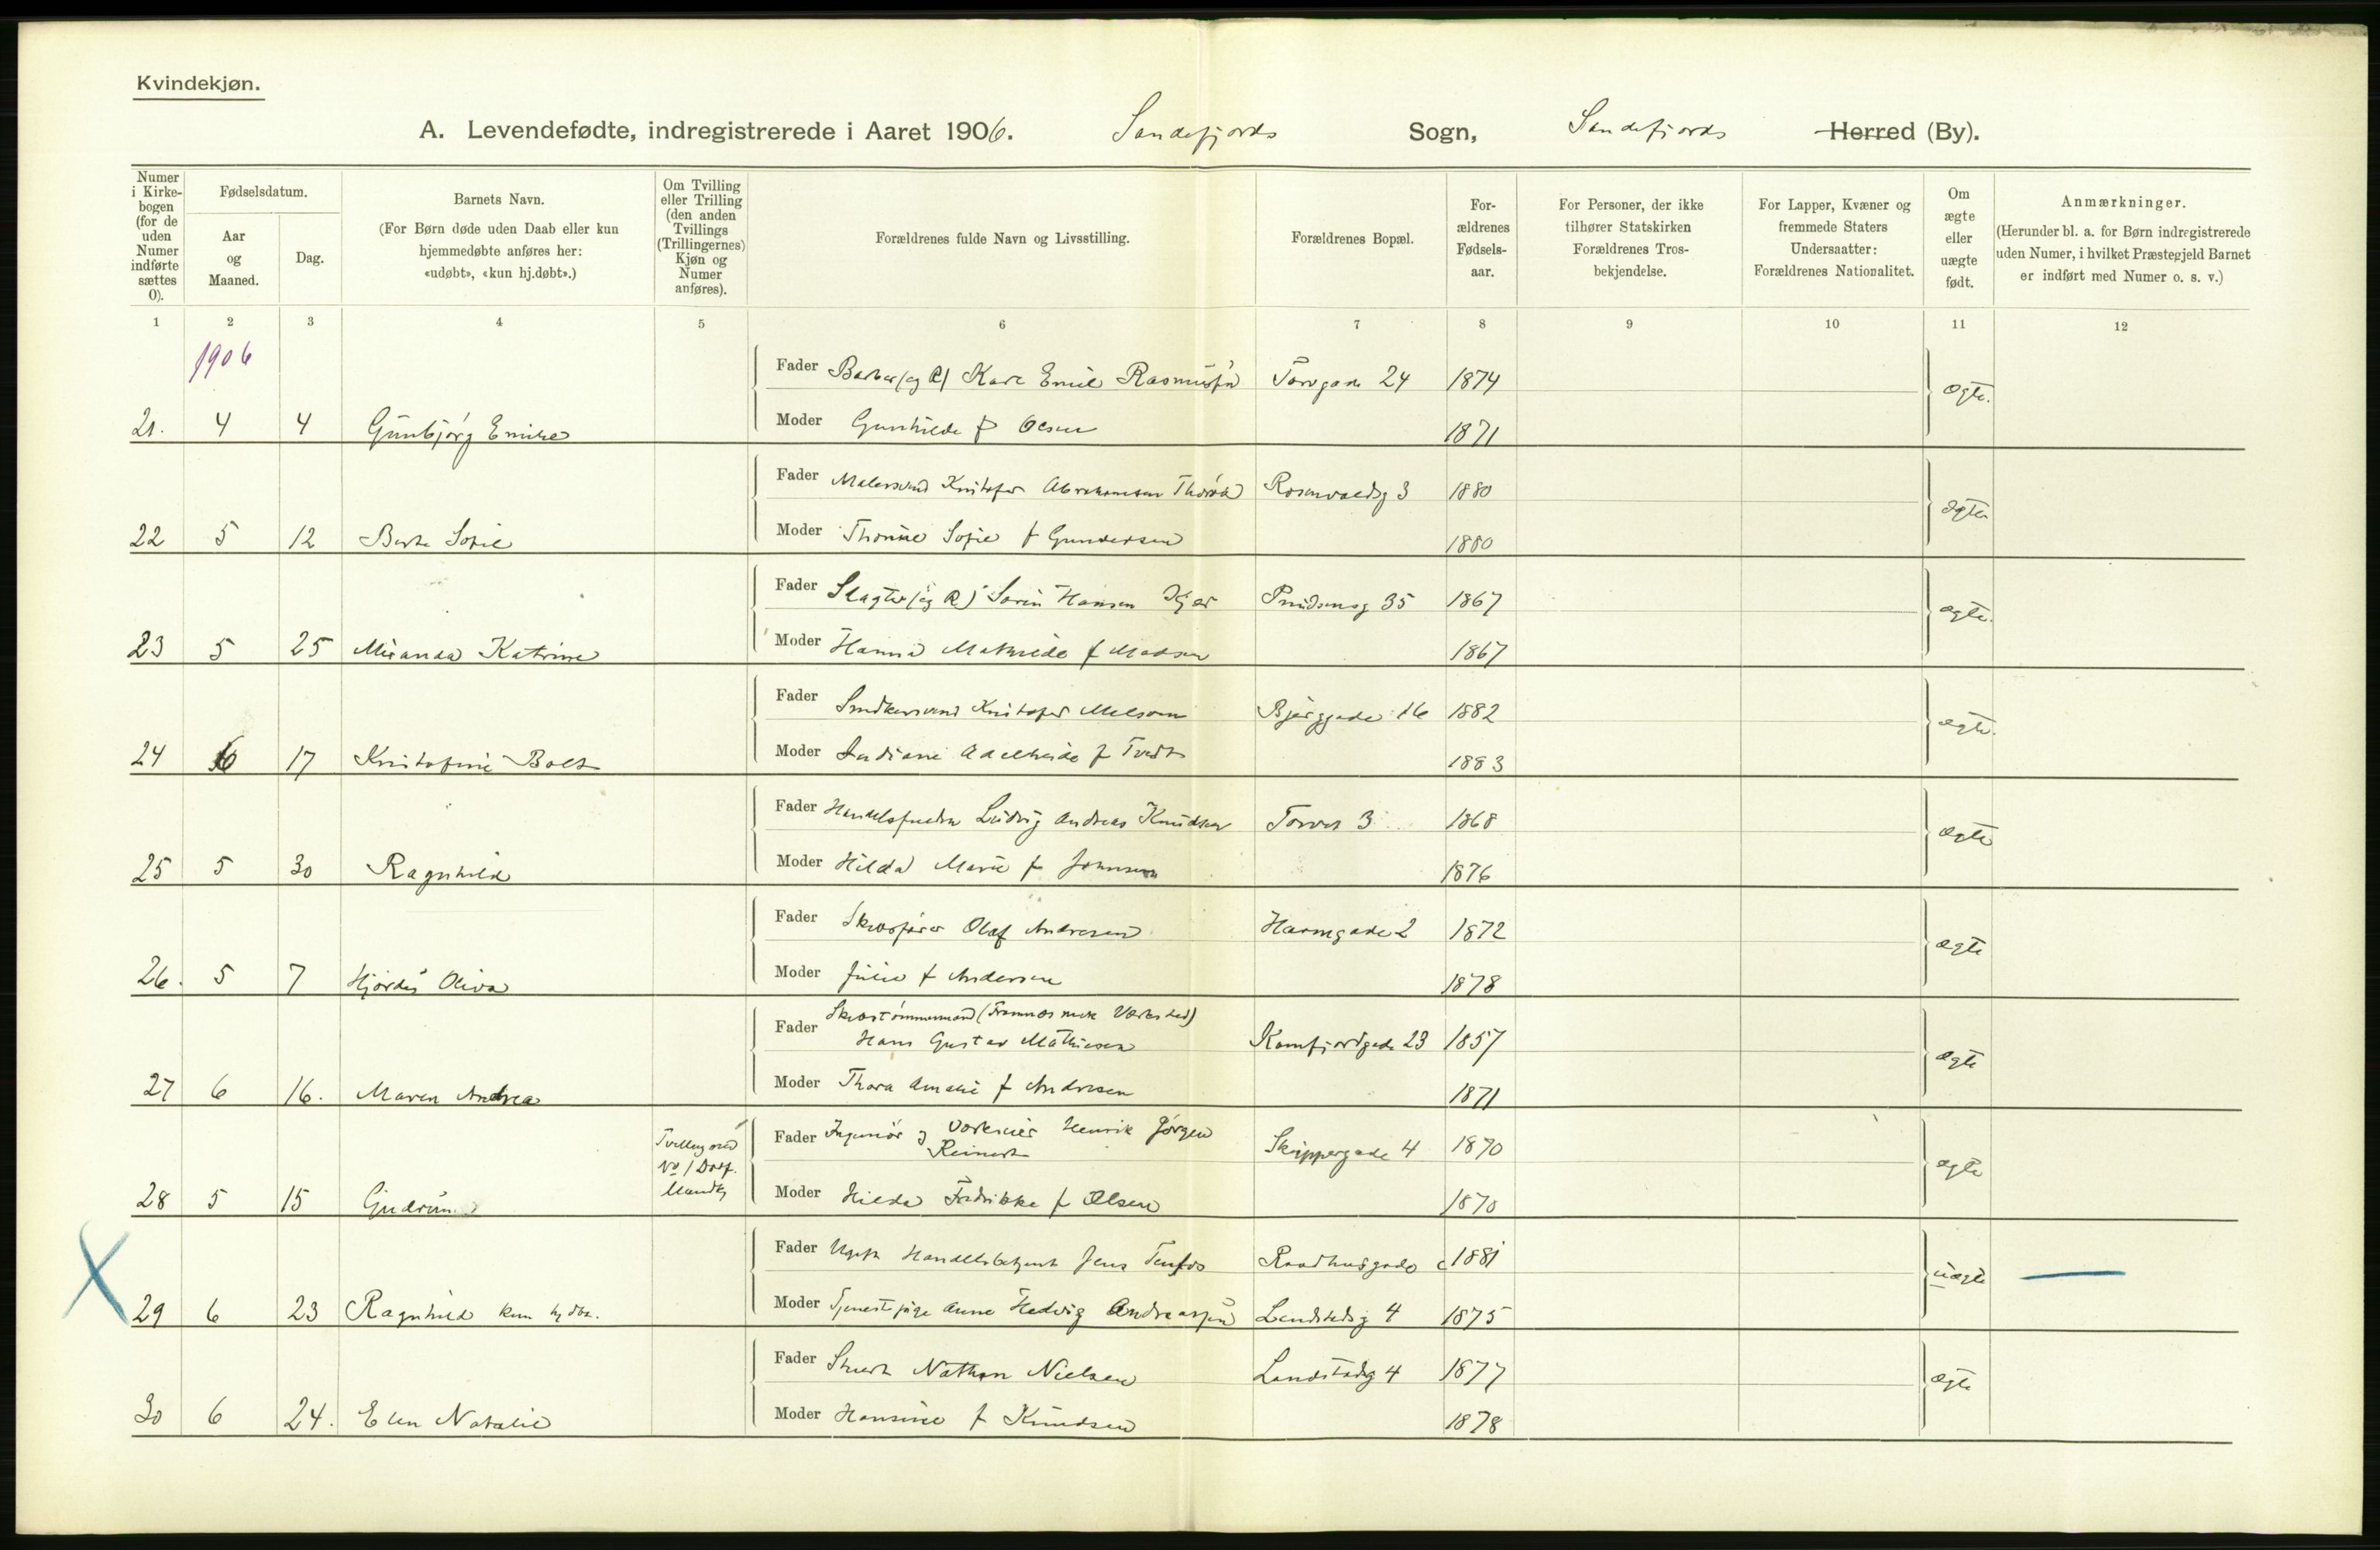 Kvindekjøn.
A. Levendefødte, indregistrerede i Aaret 1906. Sandefjords Sogn, Sandefjords Herred (By).
Numer i Kirke-bogen (for de uden Numer indførte sættes 0).
Fødselsdatum.
Aar og Maaned.
Dag.
Barnets Navn.
(For Børn døde uden Daab eller kun hjemmedøbte anføres her: «udøbt», «kun hj.døbt».)
Om Tvilling eller Trilling (den anden Tvillings (Trillingernes) Kjøn og Numer anføres).
Forældrenes fulde Navn og Livsstilling.
Forældrenes Bopæl.
For-ældrenes Fødsels-aar.
For Personer, der ikke tilhører Statskirken Forældrenes Tros-bekjendelse.
For Lapper, Kvæner og fremmede Staters Undersaatter: Forældrenes Nationalitet.
Om ægte eller uægte født.
Anmærkninger.
(Herunder bl. a. for Børn indregistrerede uden Numer, i hvilket Præstegjeld Barnet er indført med Numer o. s. v.)
1 2 3 4 5 6 7 8 9 10 11 12
1906
Fader Barber (eg R) Karl Emil Rasmussen Torvgade 24 1874 ægte.
21. 4 4 Gunbjørg Emilie Moder Gunhilde f Olsen 1871
Fader Malersvend Kristofer Abrahamsen Rosenvoldsg 3 1880 ægte
22 5 12 Berta Sofie Moder Thorine Sofie f Gundersen 1880
Fader Slagter (eg R) Sørin Hansen 35 1867 ægte.
23 5 25 Miranda Katrine Moder Hanna Mathilde f Madsen 1867
Fader Snedkersvend Kristofer Melsom Bjerggade 16 1882 ægte.
24 6 17 Kristofine Moder Adelheide f Tvedt 1883
Fader Ludvig Andreas Knudsen Torvet 3 1868 ægte
25 5 30 Ragnhild Moder Hilda Marie f Johnsen 1876
Fader Olaf Andresen Havnegade 2 1872 ægte
26. 5 7 Hjørdis Oliva Moder Julie f Andersen 1878
Skibstømmermand (Framnæs mek Værksted)
Fader Hans Gustav Mathiesen Kamfjordgade 23 1857 ægte
27 6 16. Maren Andrea Moder Thora Amalie f Andresen 1871
Tvilling med No 1 Daaf. Mandkj
Fader Ingeniør og Værkeier Henrik Jørgen
Reinert Skippergade 4 1870 ægte
28 5 15 Gudrun Moder Hilda Fredrikke f Olsen 1870
Fader Ugift Handelsbetjent Jens Raadhusgade 1881 uægte
29 6 23 Ragnhild kun hj dbt. Moder Tjenestepige Anne Hedvig Andreassen Landstadsg 4 1875
Fader Stuert Nathan Nielsen Landstadsg 4 1877 ægte
30 6 24. Elen Natalie Moder Hansine f Knudsen 1878